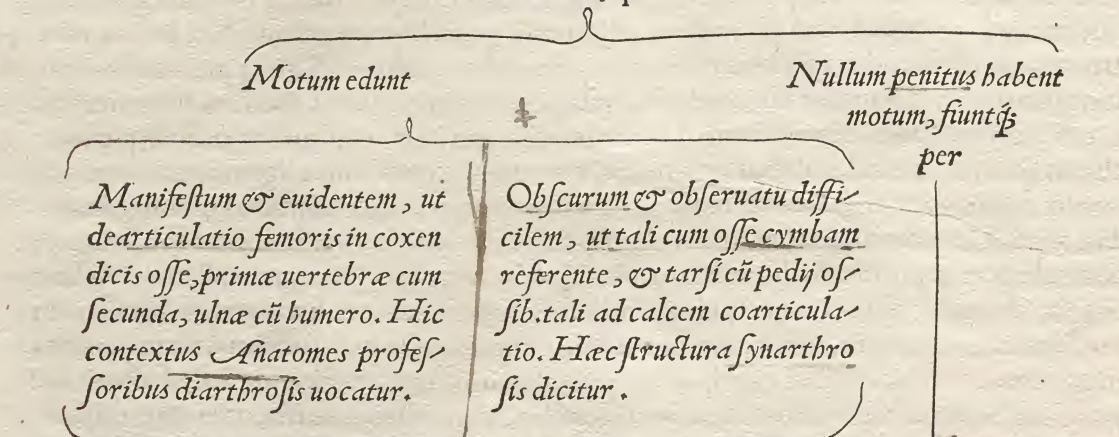 Motum edunt
Nullum penitus habent
motum, fiuntq́ꝫ
per
Manifeſtum & euidentem, ut
dearticulatio femoris in coxen
dicis oſſe, primæ uertebræ cum
ſecunda, ulnæ cũ humero. Hic
contextus Anatomes profeſ-
ſoribus diarthroſis uocatur.
Obſcurum & obſeruatu diffi-
cilem, ut tali cum oſſe cymbam
referente, & tarſi cũ pedij oſ-
ſib. tali ad calcem coarticula-
tio. Hæc ſtructura ſynarthro
ſis dicitur.